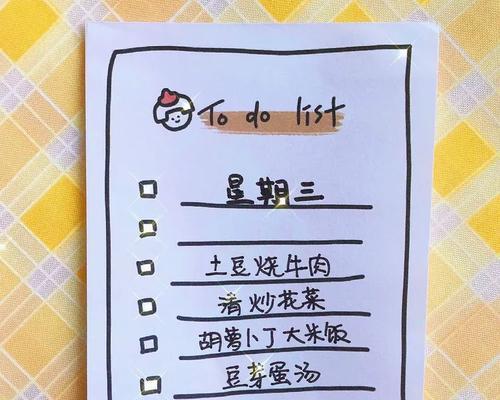 To do list
星期三
土豆烧牛肉
清炒花菜
胡萝卜丁大米饭
豆芽蛋汤